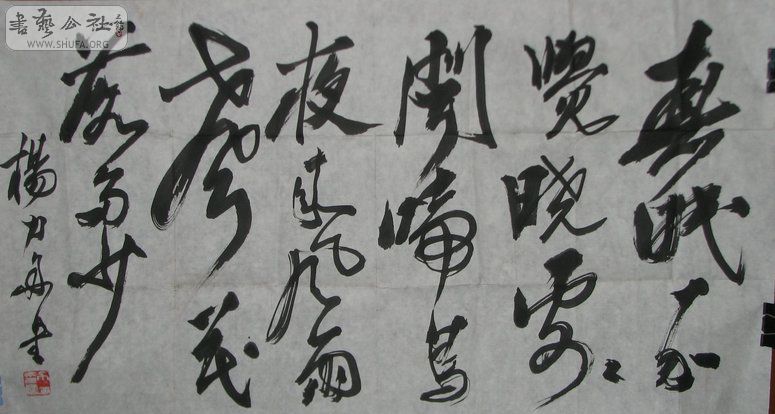 書藝公社
WWW.SHUFA.ORG
春眠不
覺曉處〻
聞啼鳥
夜来風雨
聲花
落多少
楊力舟書